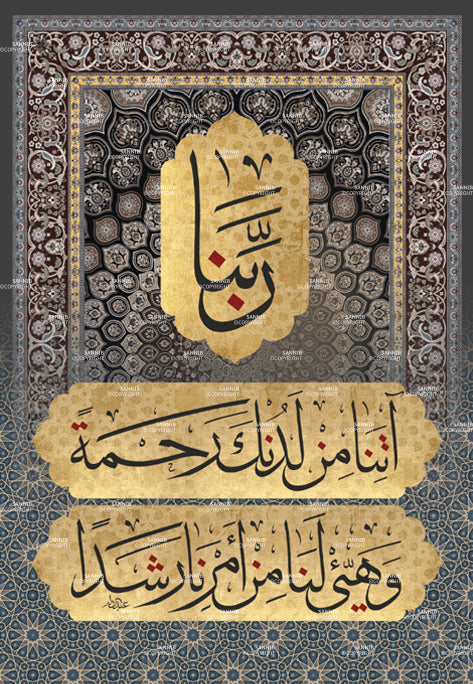 ربنا
آتنا من لدنك رحمةً
وهيئ لنا من أمرنا رشدًا
SANNIB
©COPYRIGHT